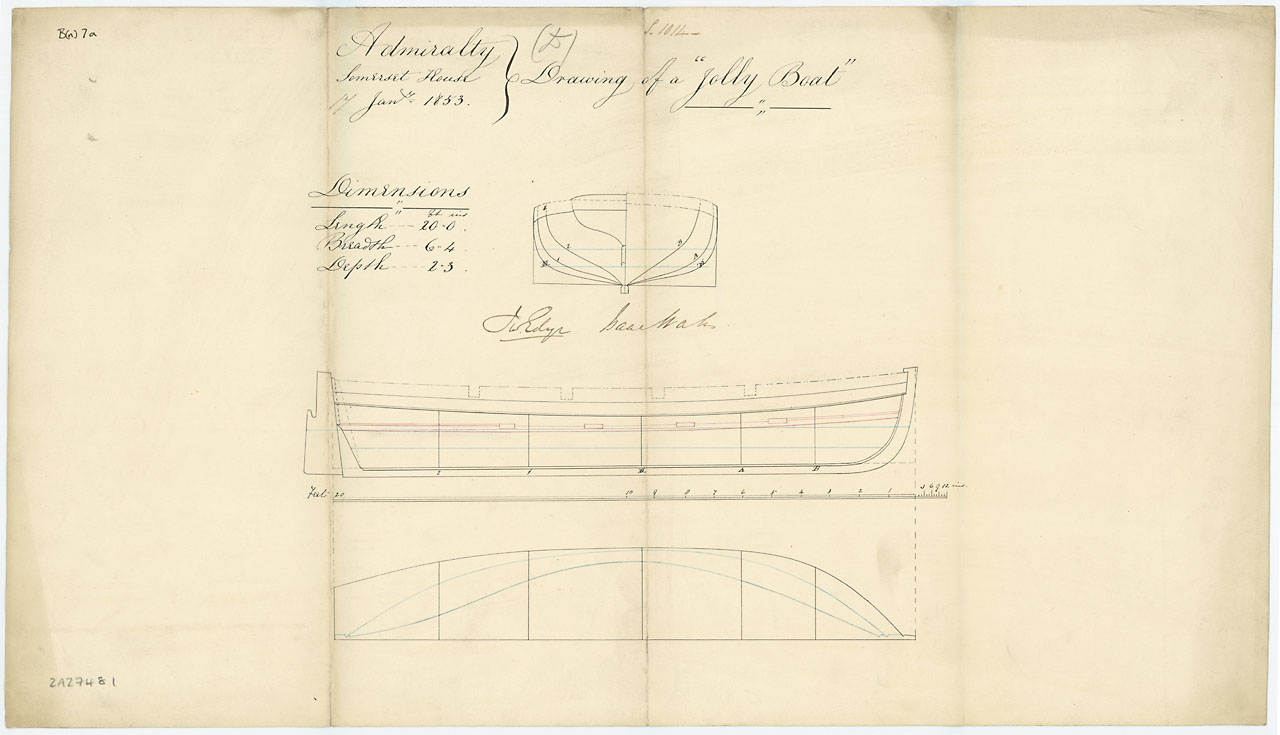 B(n) 7a
Admiralty
Somerset House
17 Jany. 1853.
(D)
Drawing of a "Jolly Boat"
Dimensions
ft ins
Length 20-0.
Breadth 6-4.
Depth 2-3.
2 1
B A
2 1 A B
Feet 20 10 9 8 7 6 5 4 3 2 1 3 6 9 12 ins.
2A27481